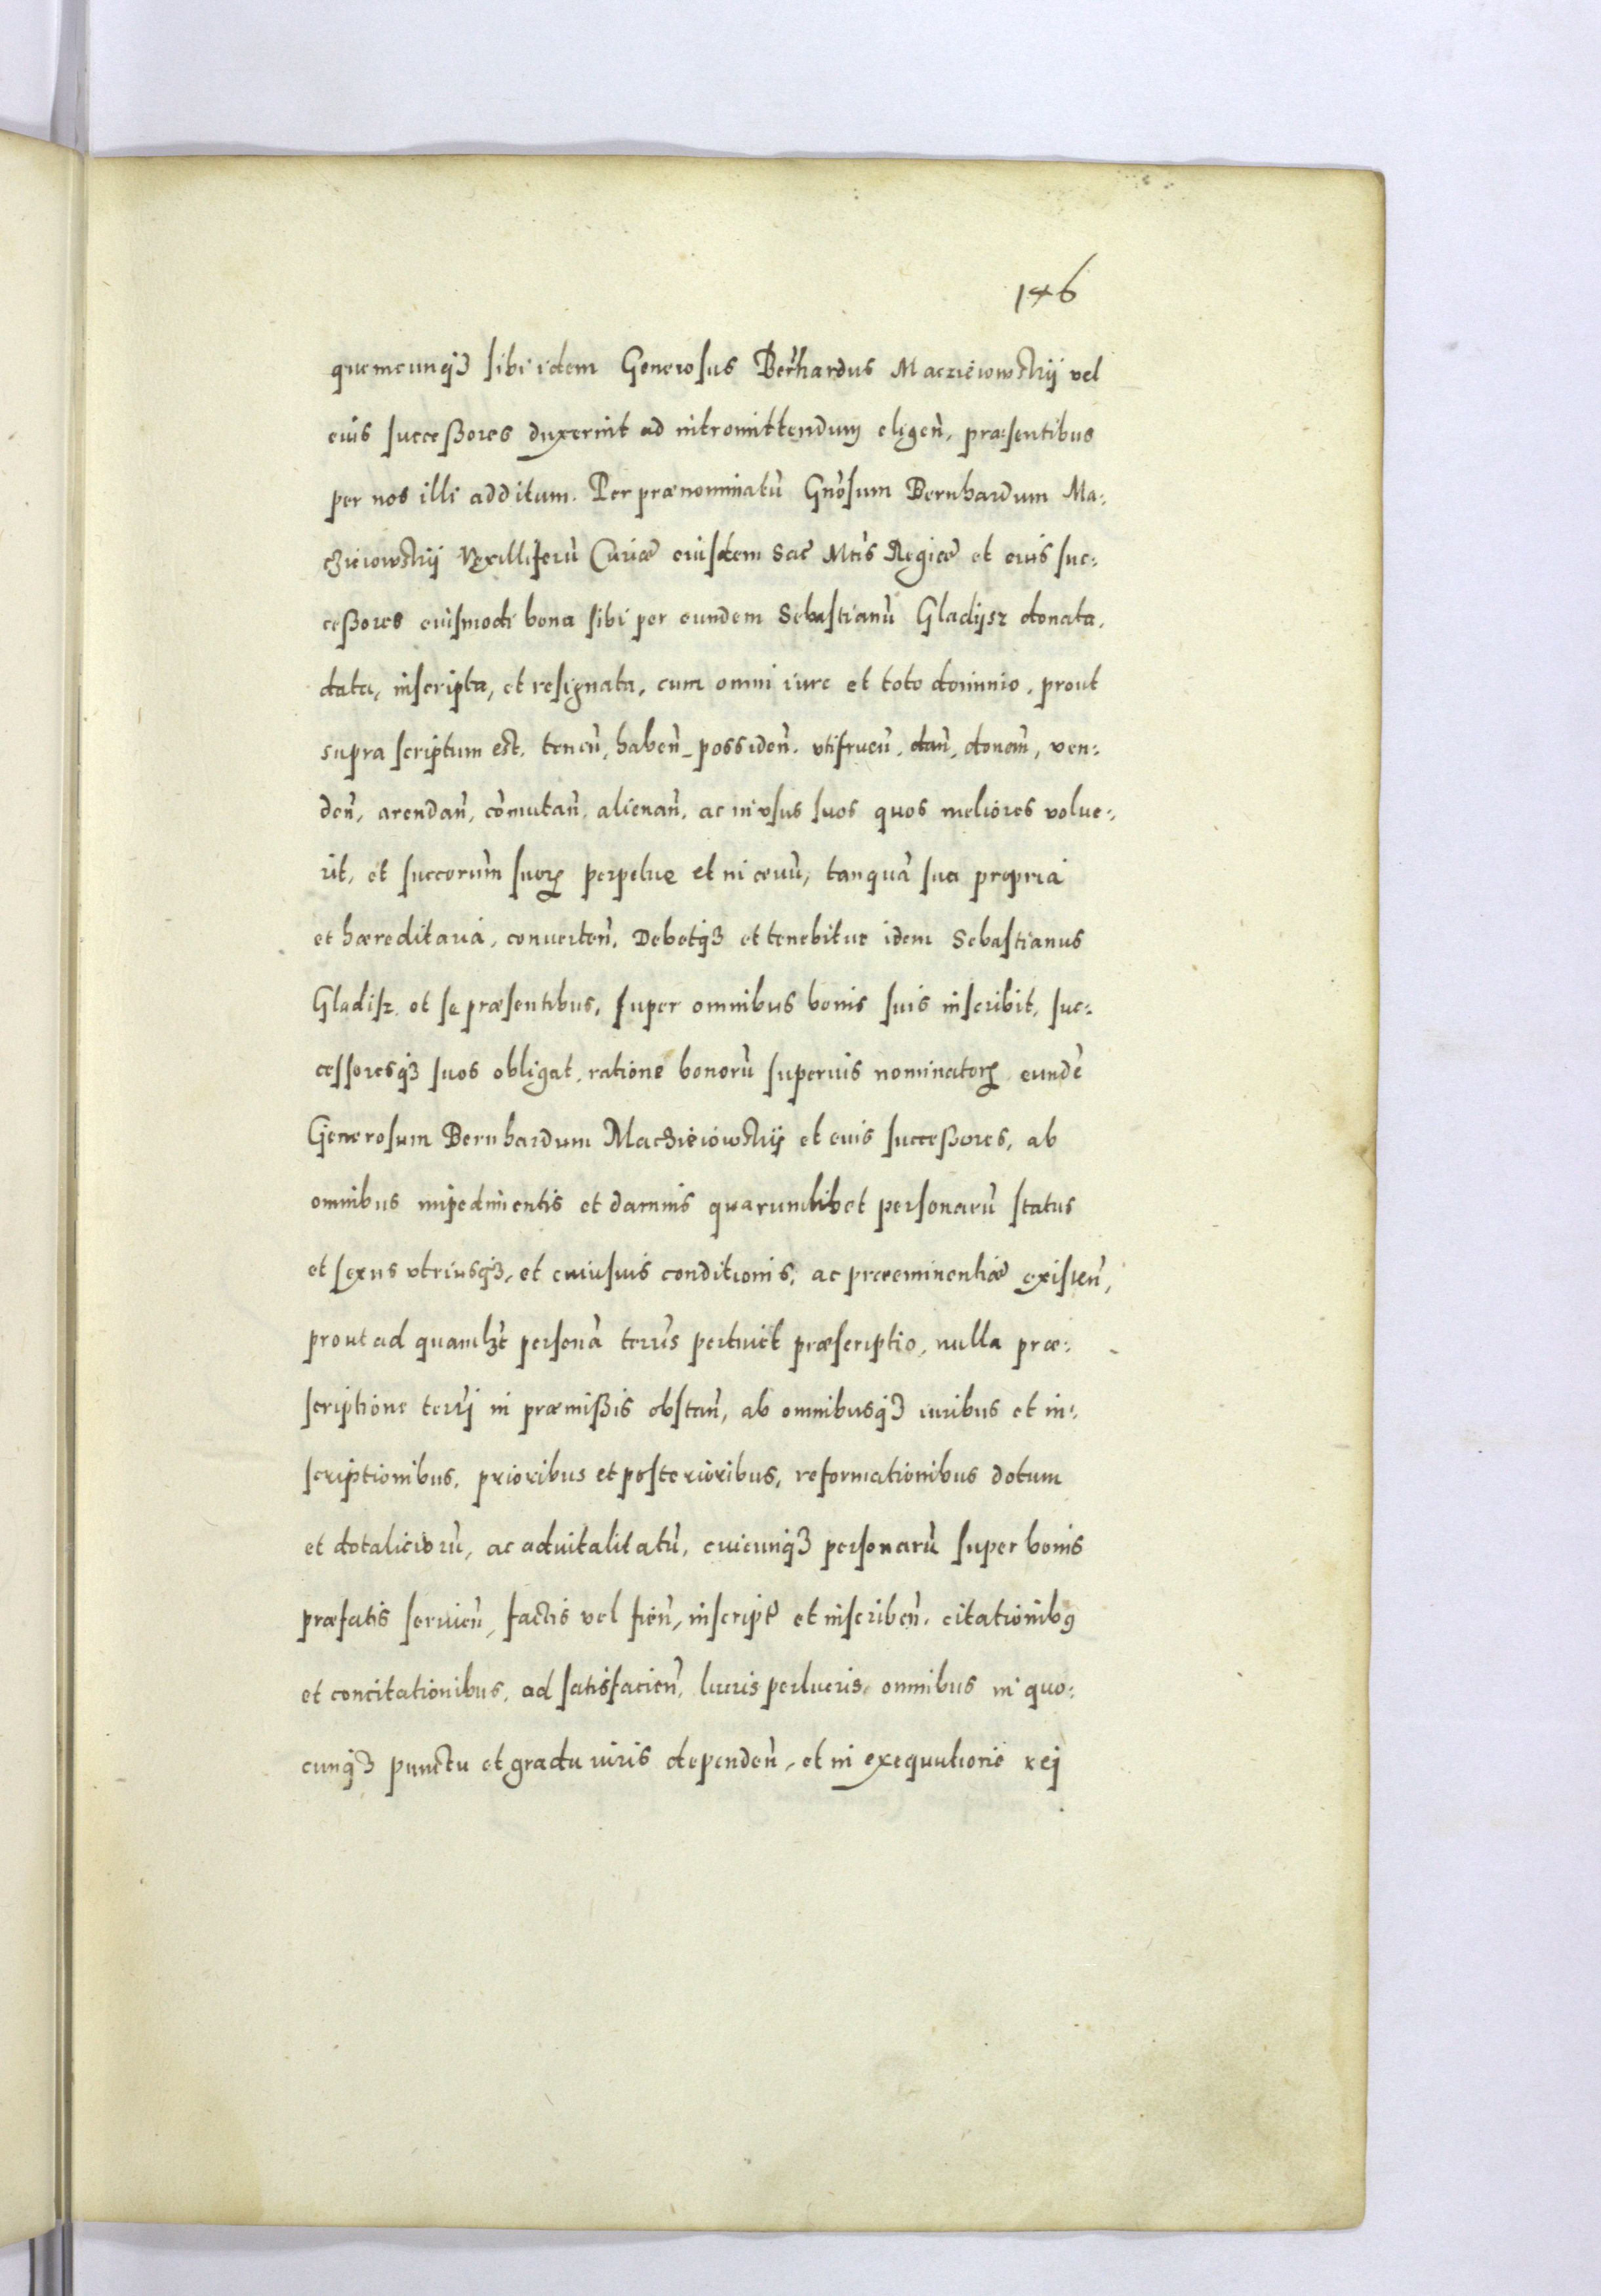 146
quemcunqꝫ sibi idem Generosus Ber̃hardus Macziéiowskij vel
eius successores duxerint ad intromittendum eligeñ, præsentibus
per nos illi additum. Per prænominatũ Gnõsum Bernhardum Ma:
cziéiowskij Vexilliferũ Curiæ eiusdem Sac̃ Mtis̃ Regiæ et eius suc:
cessores eiusmodi bona sibi per eundem Sebastianũ Gladijsz donata,
data, inscripta, et resignata, cum omni iure et toto dominio, prout
supra scriptum est. teneñ, habeñ, possideñ. vtifrueñ, dañ, donañ, ven:
deñ, arendañ, cõmutañ, alienañ, ac in vsus suos quos meliores volue:
rit, et succorum̃ suorꝝ perpetue et in æuũ, tanquã sua propria
et hæreditaria, conuerteñ. Debetqꝫ et tenebitur idem Sebastianus
Gladisz, et se præsentibus, super omnibus bonis suis inscribit, suc:
cessoresqꝫ suos obligat, ratione bonorũ superius nominatorꝝ eundẽ
Generosum Bernhardum Macziéiowskij et eius successores, ab
omnibus impedimentis et damnis quarumlibet personarũ status
et sexus vtriusqꝫ, et cuiusuis conditionis, ac præeminentiæ existeñ,
prout ad quamlꝫt personã terrĩs pertinet præscriptio, nulla præ:
scriptione terrĩ in præmissis obstañ, ab omnibusqꝫ iuribus et in:
scriptionibus, prioribus et posterioribus, reformationibus dotum
et dotaliciorũ, ac aduitalitatũ, cuicunqꝫ personarũ super bonis
præfatis seruieñ, factis vel fieñ, inscript̃ et inscribeñ. citationibꝰ
et concitationibus, ad satisfacieñ, lucris perlucris, omnibus in quo:
cunqꝫ punctu et gradu iuris dependeñ, et in exequutione rej